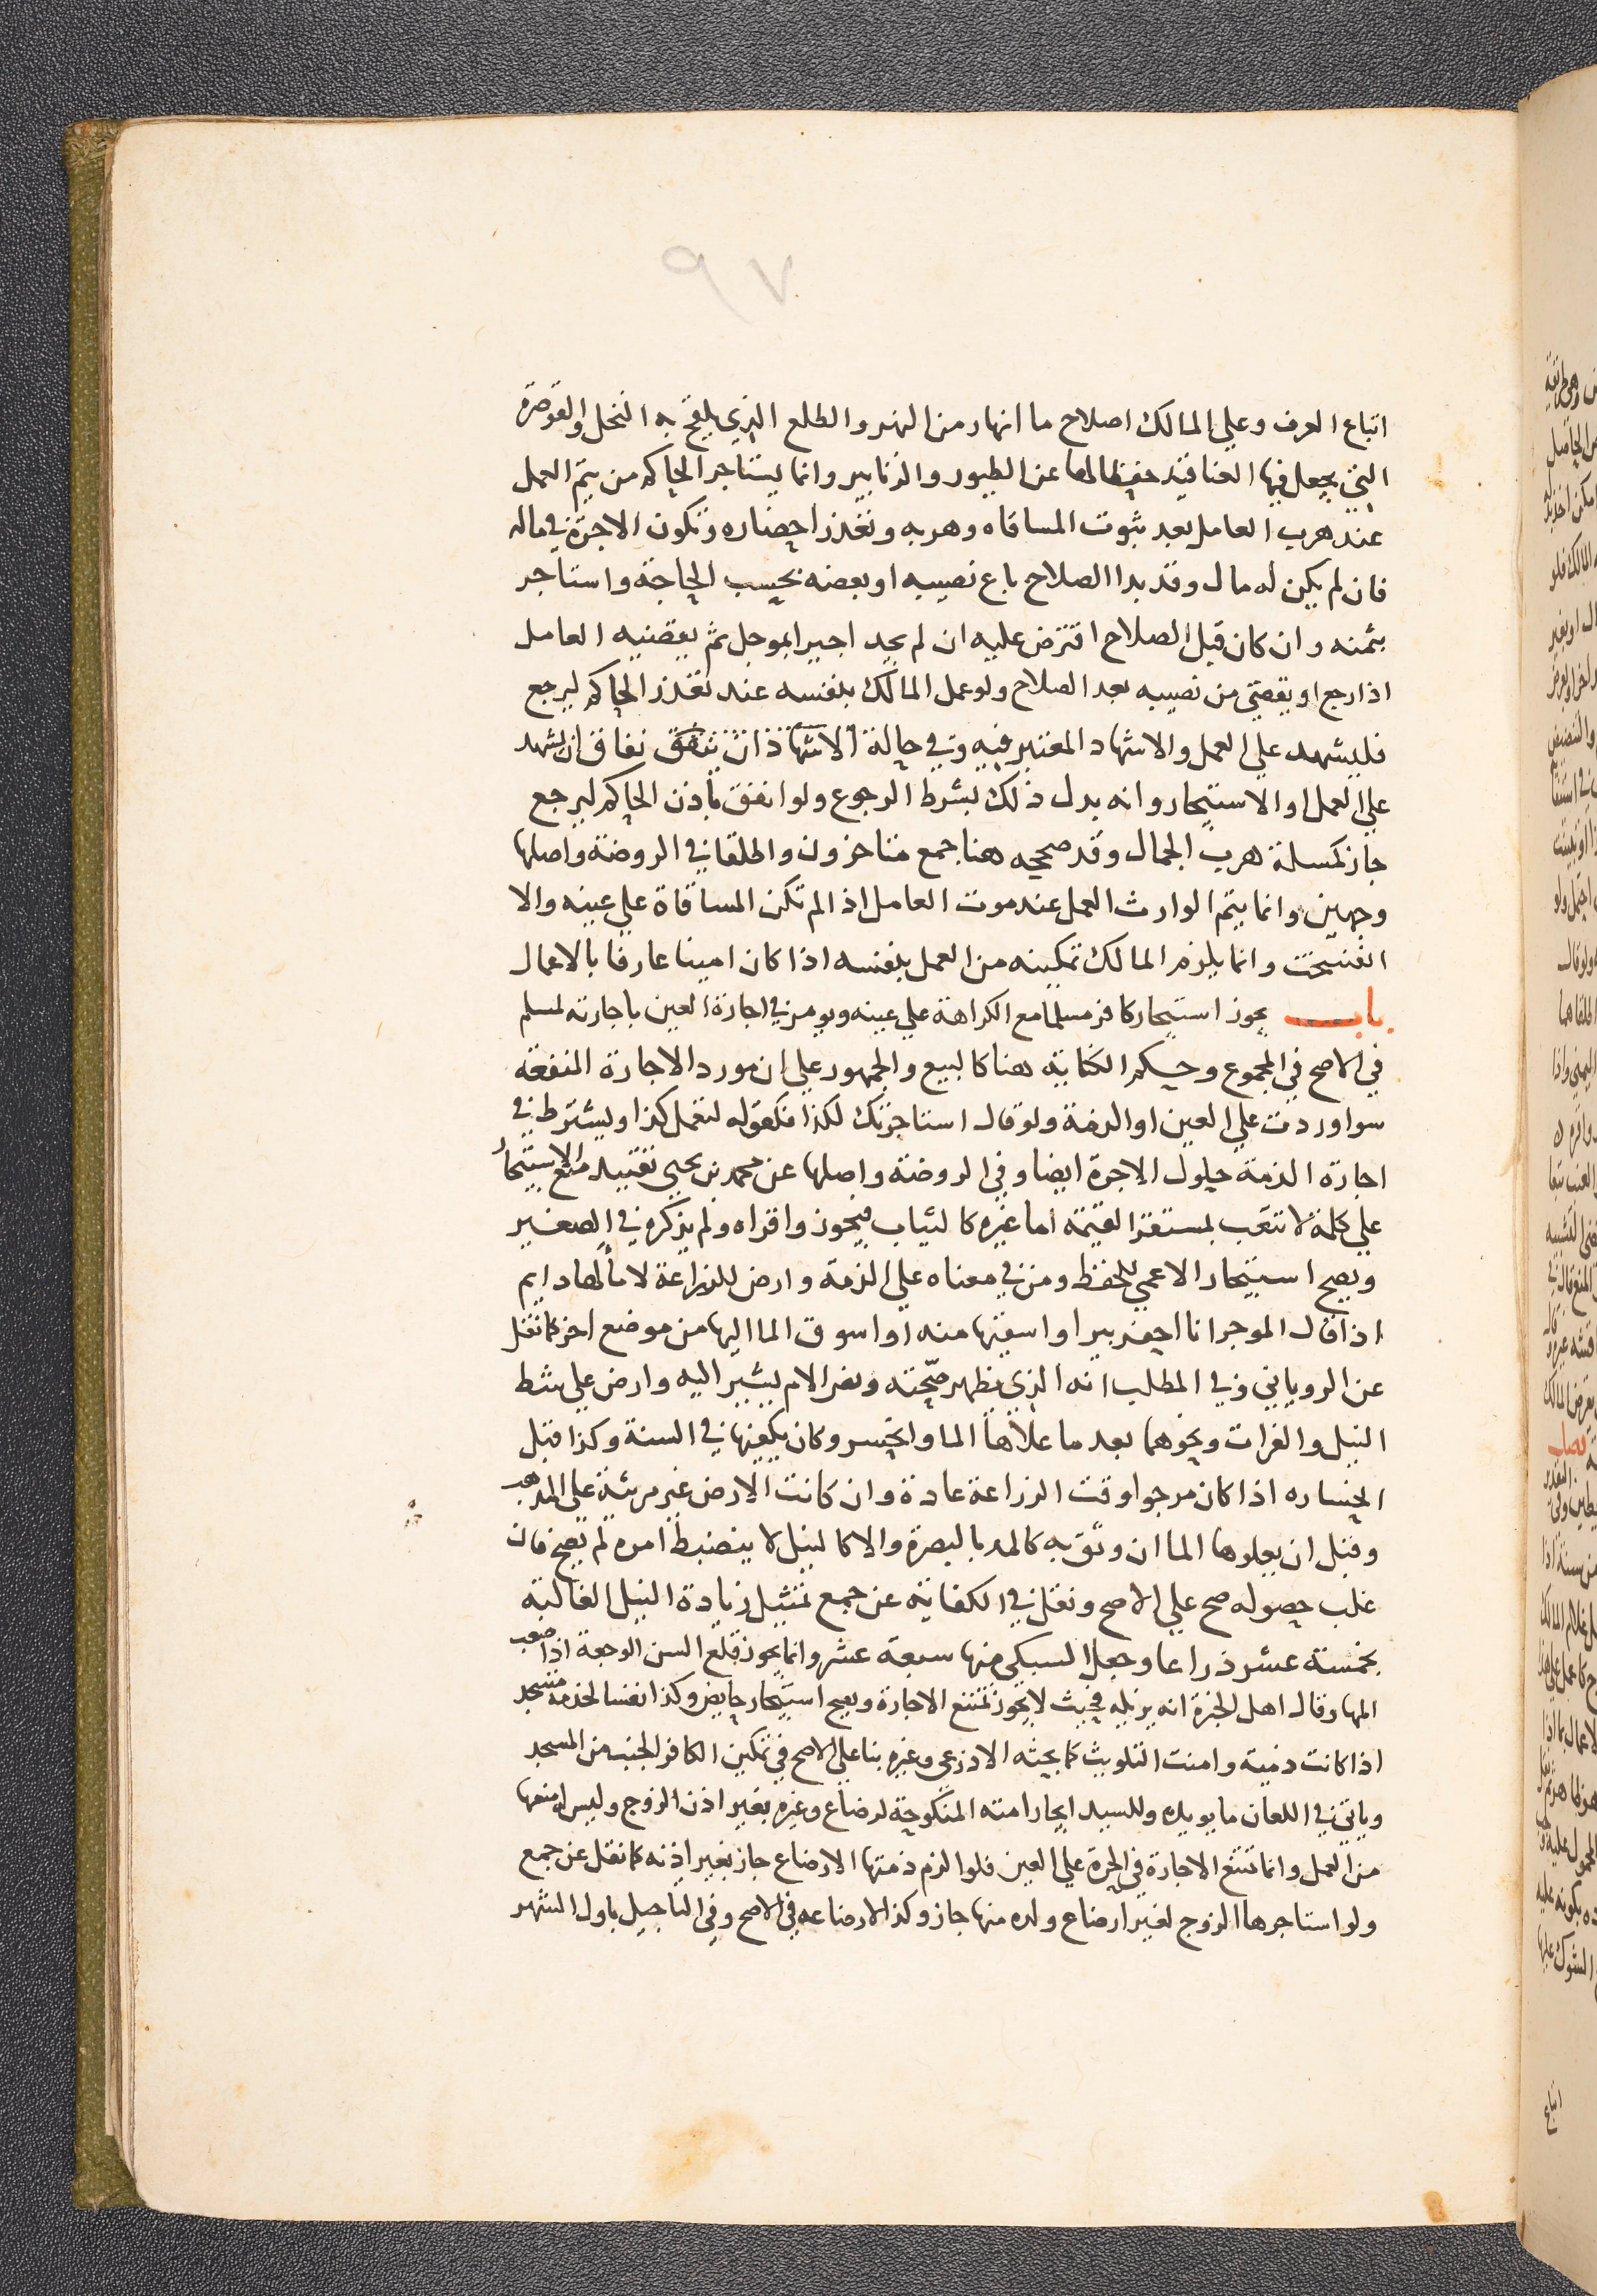 ٩٧
اتباع العرف وعلي المالك اصلاح ما انهار من النهر والطلع الذي يلقح به النخل والقوصرة
التي يجعل فيها العناقيد حفظا لها عن الطيور والزنابير وانما يستاجر الحاكم من يتم العمل
عند هرب العامل بعد ثبوت المساقاه وهربه وتعذر احضاره وتكون الاجرة في ماله
فان لم يكن له مال وقد بدا الصلاح باع نصيبه او بعضه بحسب الحاجة واستاجر
بثمنه وان كان قبل الصلاح اقترض عليه ان لم يجد اجيرا بموجل ثم يقضيه العامل
اذا رجع او يقضي من نصيبه بعد الصلاح ولو عمل المالك بنفسه عند تعذر الحاكم ليرجع
فليشهد علي العمل والاشهاد المعتبر فيه وفي حالة الاشهاد ان يشهد
علي العمل او الاستيجار وانه بدل ذلك بشرط الرجوع ولو انفق باذن الحاكم ليرجع
جاز كمسلة هرب الجمال وقد صححه هنا جمع متاخرون واطلقا في الروضة واصلها
وجهين وانما يتم الوارث العمل عند موت العامل اذا لم تكن المساقاة علي عينه والا
انفسخت وانما يلزم المالك تمكينه من العمل بنفسه اذا كان امينا عارفا بالاعمال
باب يجوز استيجار كافر مسلما مع الكراهة علي عينه ويومر في اجارة العين باجارته لمسلم
في الاصح في المجموع وحكم الكتابة هنا كالبيع والجمهور علي ان مورد الاجارة المنفعة
سوا وردت علي العين او الذمة ولو قال استاجرتك لكذا فكقوله لتعمل كذا ويشترط في
اجارة الذمة حلول الاجرة ايضا وفي الروضة واصلها عن محمد بن يحيى تقييد منع الاستيجار
علي كلمة لا تتعب بمستقر القيمة اما غيره كالثياب فيجوز واقراه ولم يذكره في الصغير
ويصح استيجار الاعمي للحفظ ومن في معناه علي الذمة وارض للزراعة لا ما لها دايم
اذا قال الموجر انا احفر بيرا واسقيها منه او اسوق الما اليها من موضع اخر كما نقل
عن الروياني وفي المطلب انه الذي يظهر صحته ونص الام يشير اليه وارض علي شط
النيل والفرات ونحوهما بعد ما علاها الما وانحسر وكان يكفيها في السنة وكذا قبل
انحساره اذا كان مرجوا وقت الزراعة عادة وان كانت الارض غير مرئية علي المذهب
وقبل ان يعلوها الما ان وثق به كالمد بالبصرة والا كالنيل لا ينضبط امره لم يصح فان
غلب حصوله صح علي الاصح ونقل في الكفاية عن جمع تمثيل زيادة النيل الغالبة
بخمسة عشر ذراعا وجعل السبكي منها سبعة عشر وانما يجوز قلع السن الوجعة اذا صعب
المها وقال اهل الخبرة انه يزيله فحيث لا يجوز تمتنع الاجارة ويصح استيجار حايض وكذا نفسا لخدمة مسجد
اذا كانت ذمية وامنت التلويث كما بحثه الاذرعي وغيره بنا علي الاصح في تمكين الكافر الجنب من المسجد
وياتي في اللعان ما يويده وللسيد ايجار امته المنكوحة لرضاع وغيره بغير اذن الزوج وليس له منعها
من العمل وانما تمتنع الاجارة في الحرة علي العين فلو الزم ذمتها الارضاع جاز بغير اذنه كما نقل عن جمع
ولو استاجرها الزوج لغير ارضاع ولده منها جاز وكذا لارضاعه في الاصح وفي التاجيل باول الشهر
اتباع